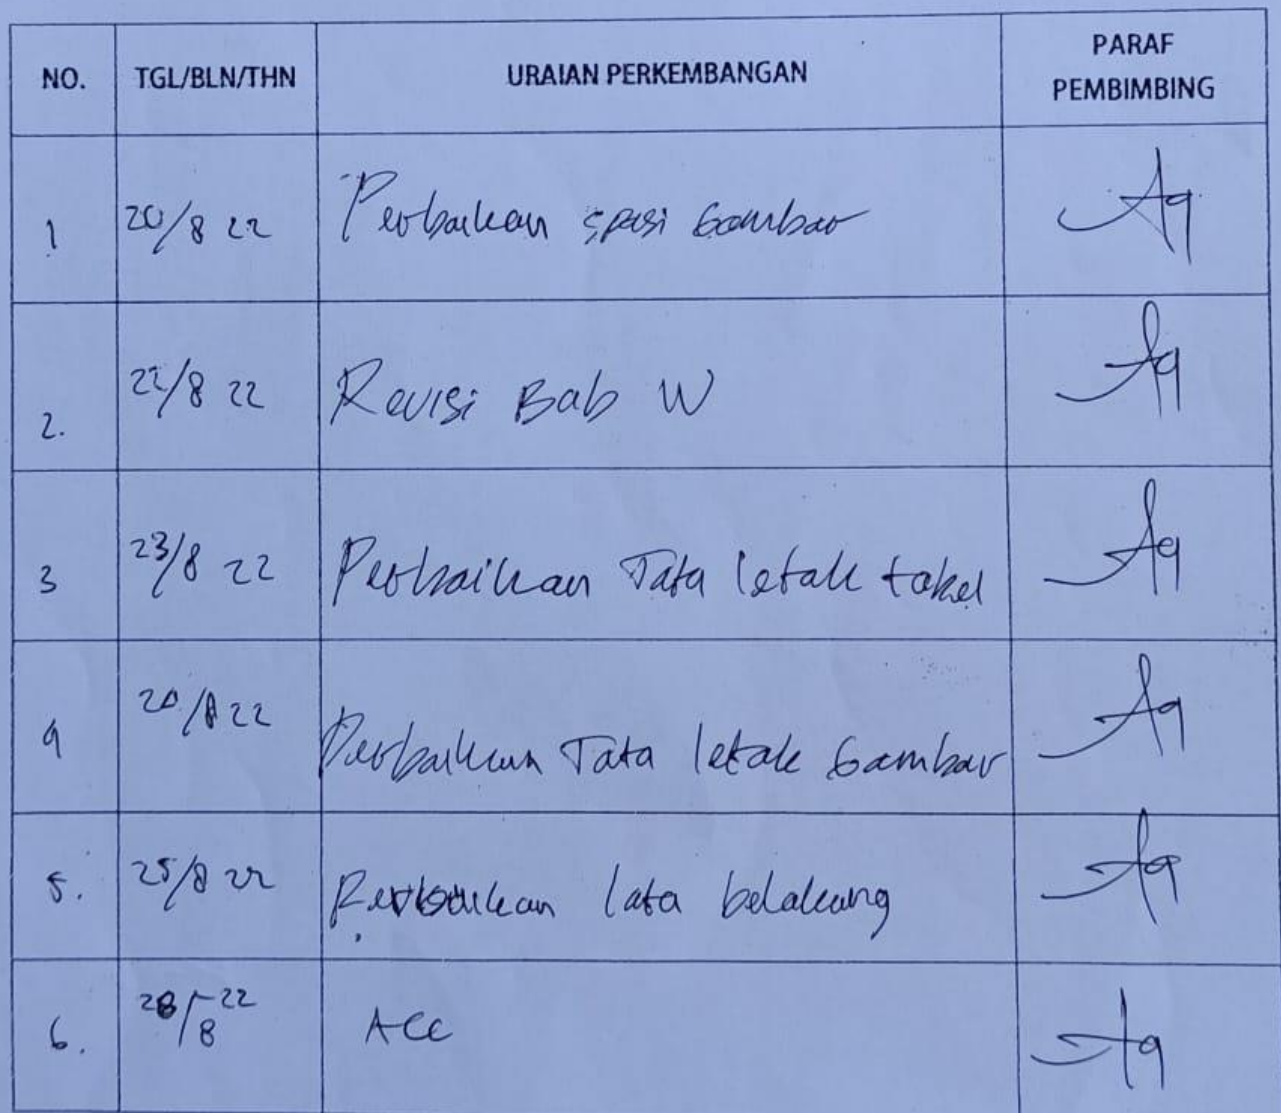 NO. TGL/BLN/THN URAIAN PERKEMBANGAN PARAF PEMBIMBING
1 20/8 22 Perbaikan spasi Gambar
2. 22/8 22 Revisi Bab IV
3 23/8 22 Perbaikan Tata letak tabel
4 22 Perbaikan Tata letak Gambar
5. 25/8 22 Perbaikan lata belakang
6. 28/8-22 ACC